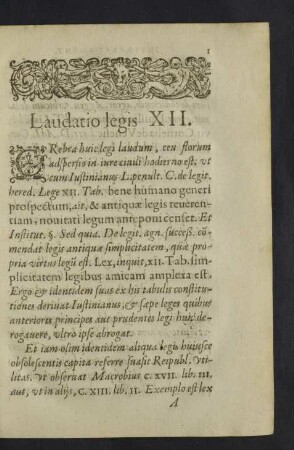 1
Laudatio legis XII.
CRebra huic legi laudum, ceu florum
adspersio in iure ciuili hodierno est, vt
cum Iustinianus L. penult. C. de legit.
hered. Lege XII. Tab. bene humano generi
prospectum, ait, & antiquæ legis reueren-
tiam, nouitati legum anteponi censet. Et
Institut. §. Sed quia. De legit. agn. success. cō-
mendat legis antiquæ simplicitatem, quæ pro-
pria virtus legū est. Lex, inquit, XII. Tab. sim-
plicitatem legibus amicam amplexa est.
Ergo & identidem suas ex his tabulis constitu-
tiones deriuat Iustinianus, & sæpe leges quibus
anteriores principes aut prudentes legi huic de-
rogauere, vltro ipse abrogat.
Et iam olim identidem aliqua legis huiusce
obsolescentis capita referre suasit Reipubl. vti-
litas. vt obseruat Macrobius c. XVII. lib. III.
aut, vt in alijs, C. XIII. lib. II. Exemplo est lex
A